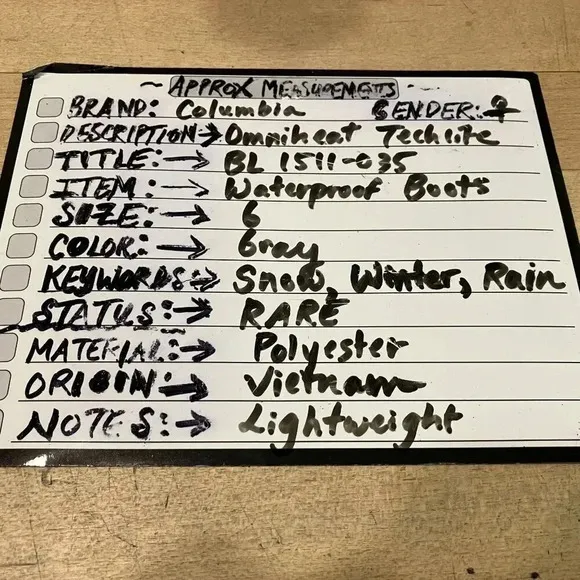 ~ APPROX MEASUREMENTS ~
BRAND: Columbia GENDER: ♀
DESCRIPTION→ Omniheat Techlite
TITLE:→ BL 1511-035
ITEM:→ Waterproof Boots
SIZE:→ 6
COLOR:→ Gray
KEYWORDS:→ Snow, Winter, Rain
STATUS:→ RARE
MATERIAL:→ Polyester
ORIGIN:→ Vietnam
NOTES:→ Lightweight